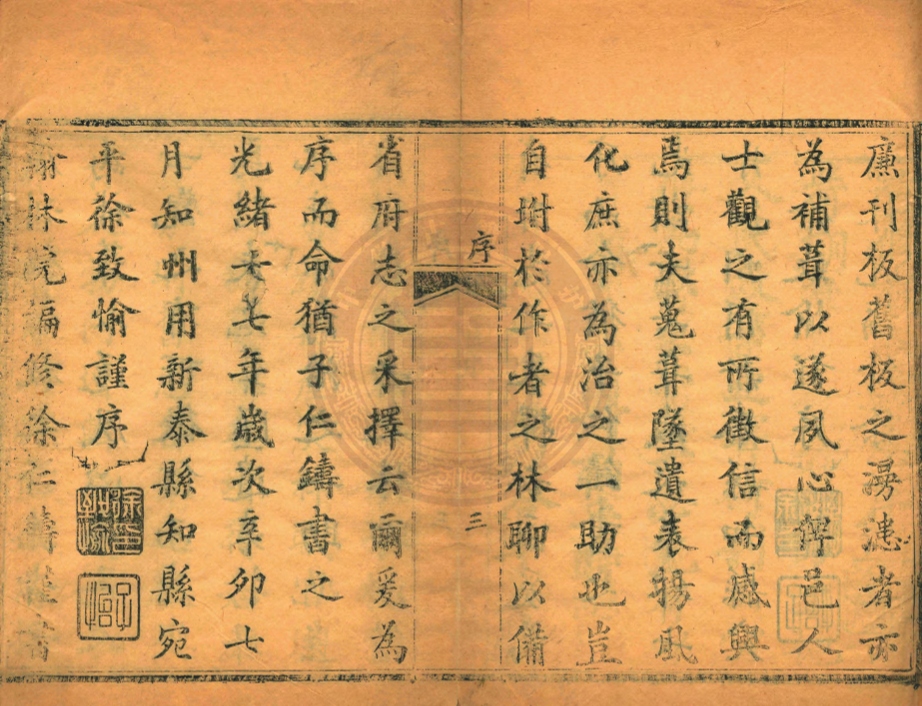 廉刊板舊板之漫漶者亦
為補葺以遂夙心俾邑人
士觀之有所徵信而感興
焉則夫蒐葺墜遺表揚風
化庶亦為治之一助也豈
自坿於作者之林聊以備
序
三
省府志之采擇云爾爰為
序而命猶子仁鑄書之
光緒十七年歲次辛卯七
月知州用新泰縣知縣宛
平徐致愉謹序
翰林院編修徐仁鑄謹書